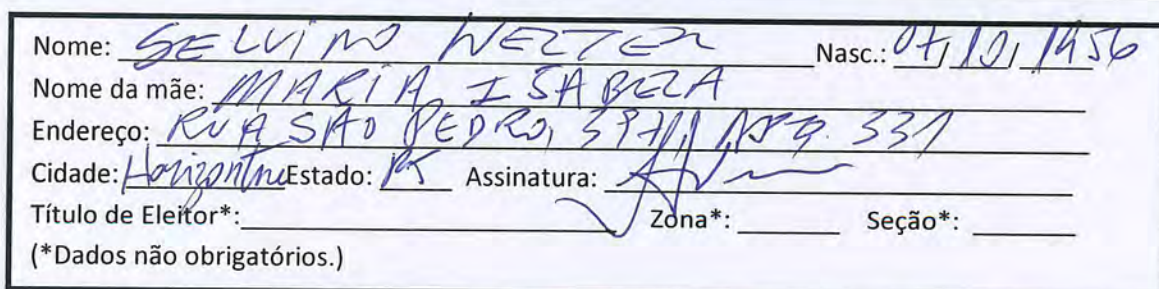 Nome: SELVINO WELTER Nasc.: 07/10/1956
Nome da mãe: MARIA ISABELA
Endereço: RUA SÃO PEDRO, 331
Cidade: Horizontina Estado: RS Assinatura:
Título de Eleitor*: Zona*: Seção*:
(*Dados não obrigatórios.)